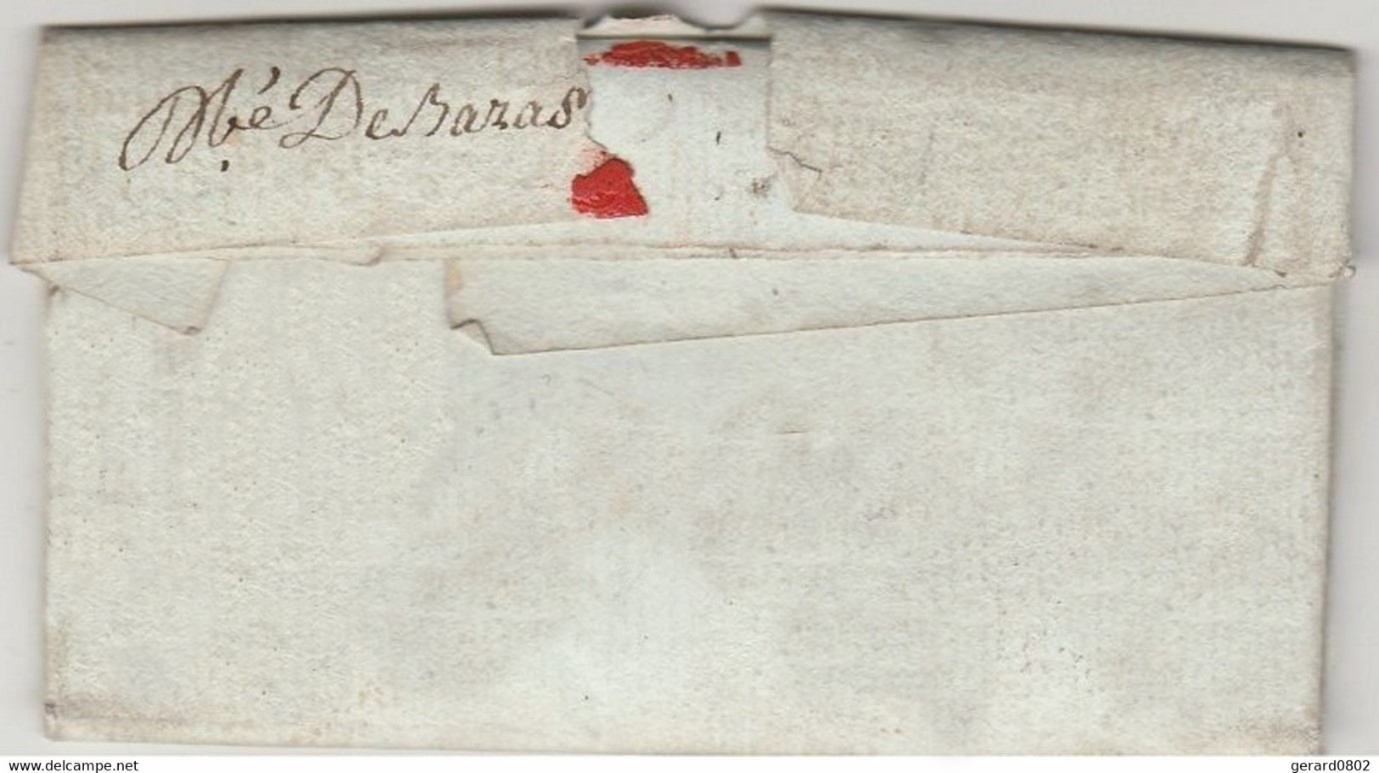 Dbé De Bazas
www.delcampe.net
gerard0802